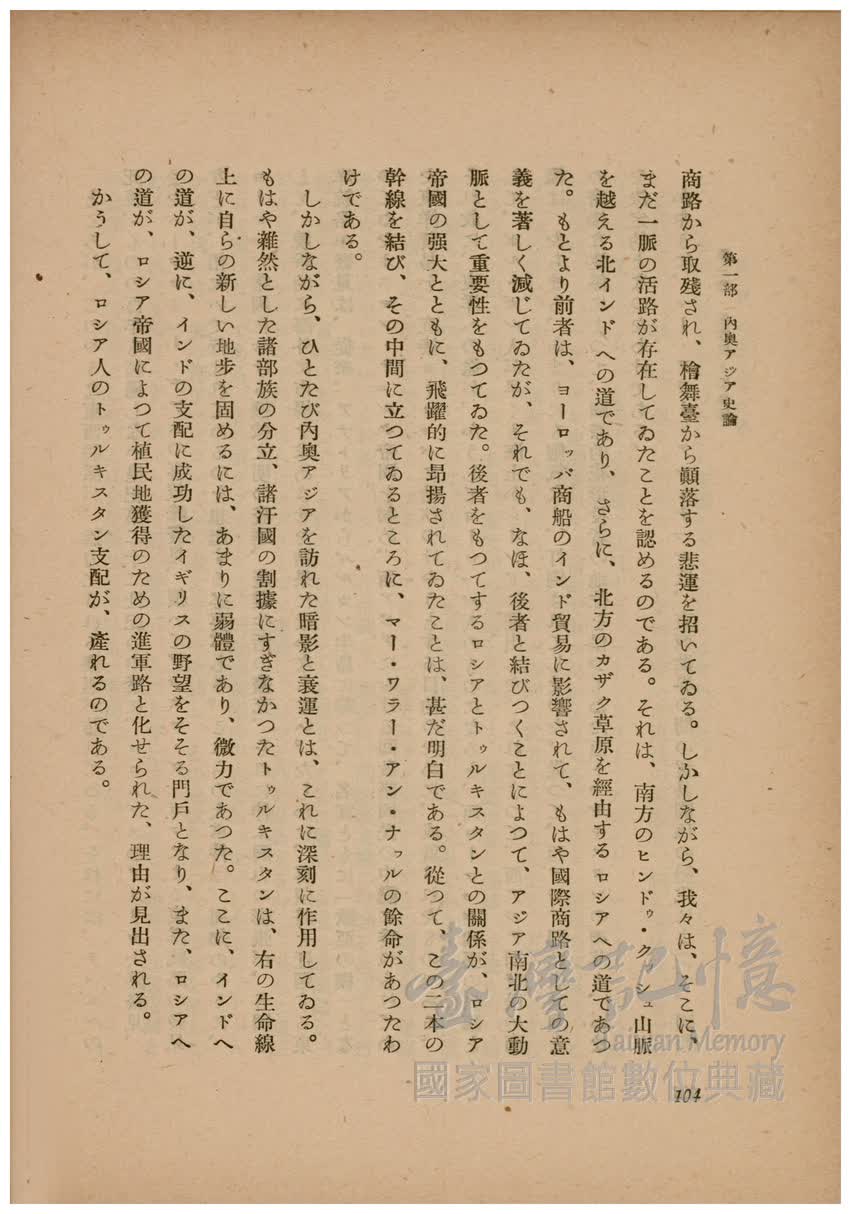 第一部　內奧アジア史論
商路から取殘され、檜舞臺から顚落する悲運を招いてゐる。しかしながら、我々は、そこに、
まだ一脈の活路が存在してゐたことを認めるのである。それは、南方のヒンドゥ・クッシュ山脈
を越える北インドへの道であり、さらに、北方のカザク草原を經由するロシアへの道であつ
た。もとより前者は、ヨーロッパ商船のインド貿易に影響されて、もはや國際商路としての意
義を著しく減じてゐたが、それでも、なほ、後者と結びつくことによつて、アジア南北の大動
脈として重要性をもつてゐた。後者をもつてするロシアとトゥルキスタンとの關係が、ロシア
帝國の强大とともに、飛躍的に昂揚されてゐたことは、甚だ明白である。從つて、この二本の
幹線を結び、その中間に立つてゐるところに、マー・ワラー・アン・ナッルの餘命があつたわ
けである。
しかしながら、ひとたび內奧アジアを訪れた暗影と衰運とは、これに深刻に作用してゐる。
もはや雜然とした諸部族の分立、諸汗國の割據にすぎなかつたトゥルキスタンは、右の生命線
上に自らの新しい地步を固めるには、あまりに弱體であり、微力であつた。ここに、インドへ
の道が、逆に、インドの支配に成功したイギリスの野望をそそる門戶となり、また、ロシアへ
の道が、ロシア帝國によつて植民地獲得のための進軍路と化せられた、理由が見出される。
かうして、ロシア人のトゥルキスタン支配が、產れるのである。
104
臺灣記憶
Taiwan Memory
國家圖書館數位典藏